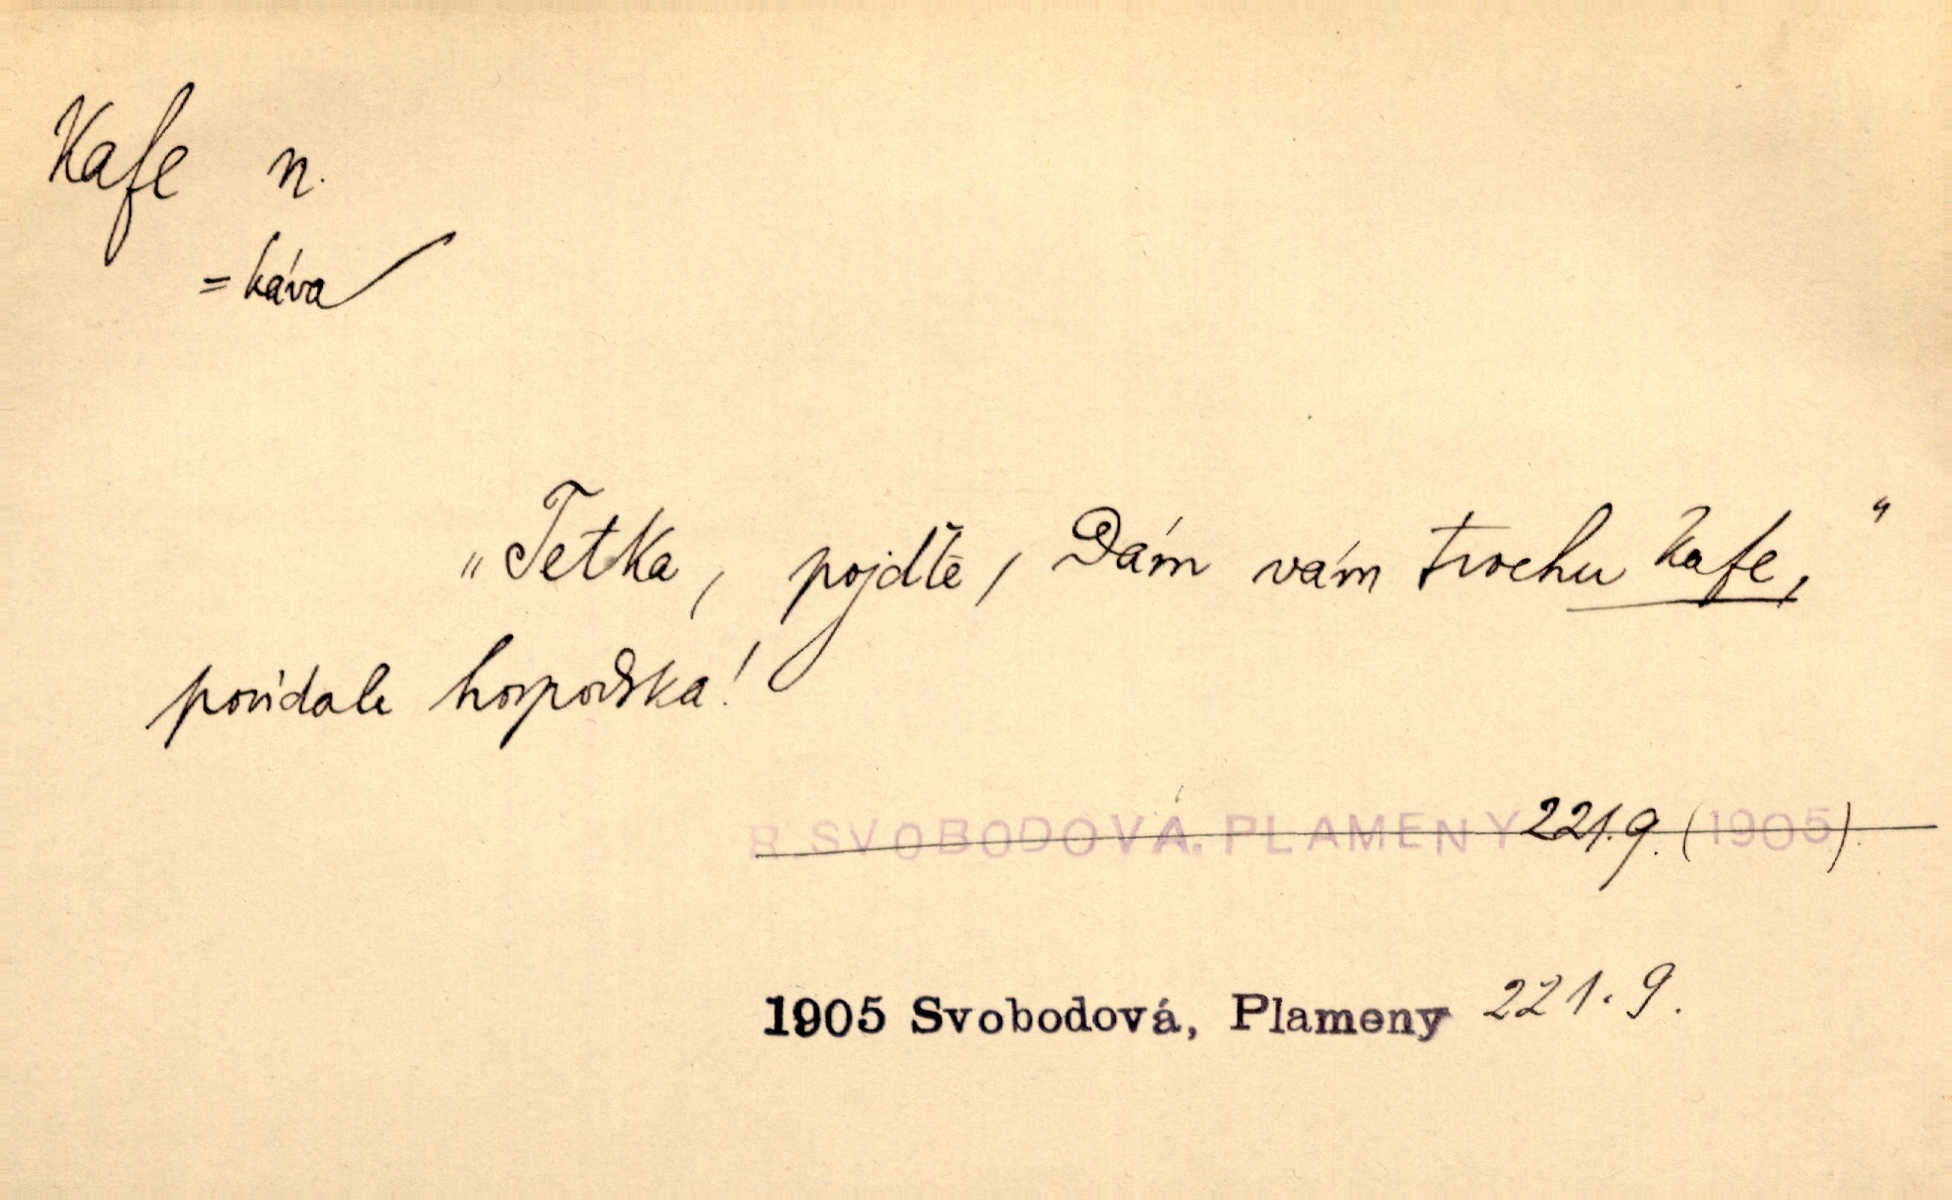 Kafe n.
= káva
„Tetka, pojďte, Dám vám trochu kafe,“
povídala hospodska!
R. SVOBODOVÁ, PLAMENY 221.9. (1905).
1905 Svobodová, Plameny 221.9.